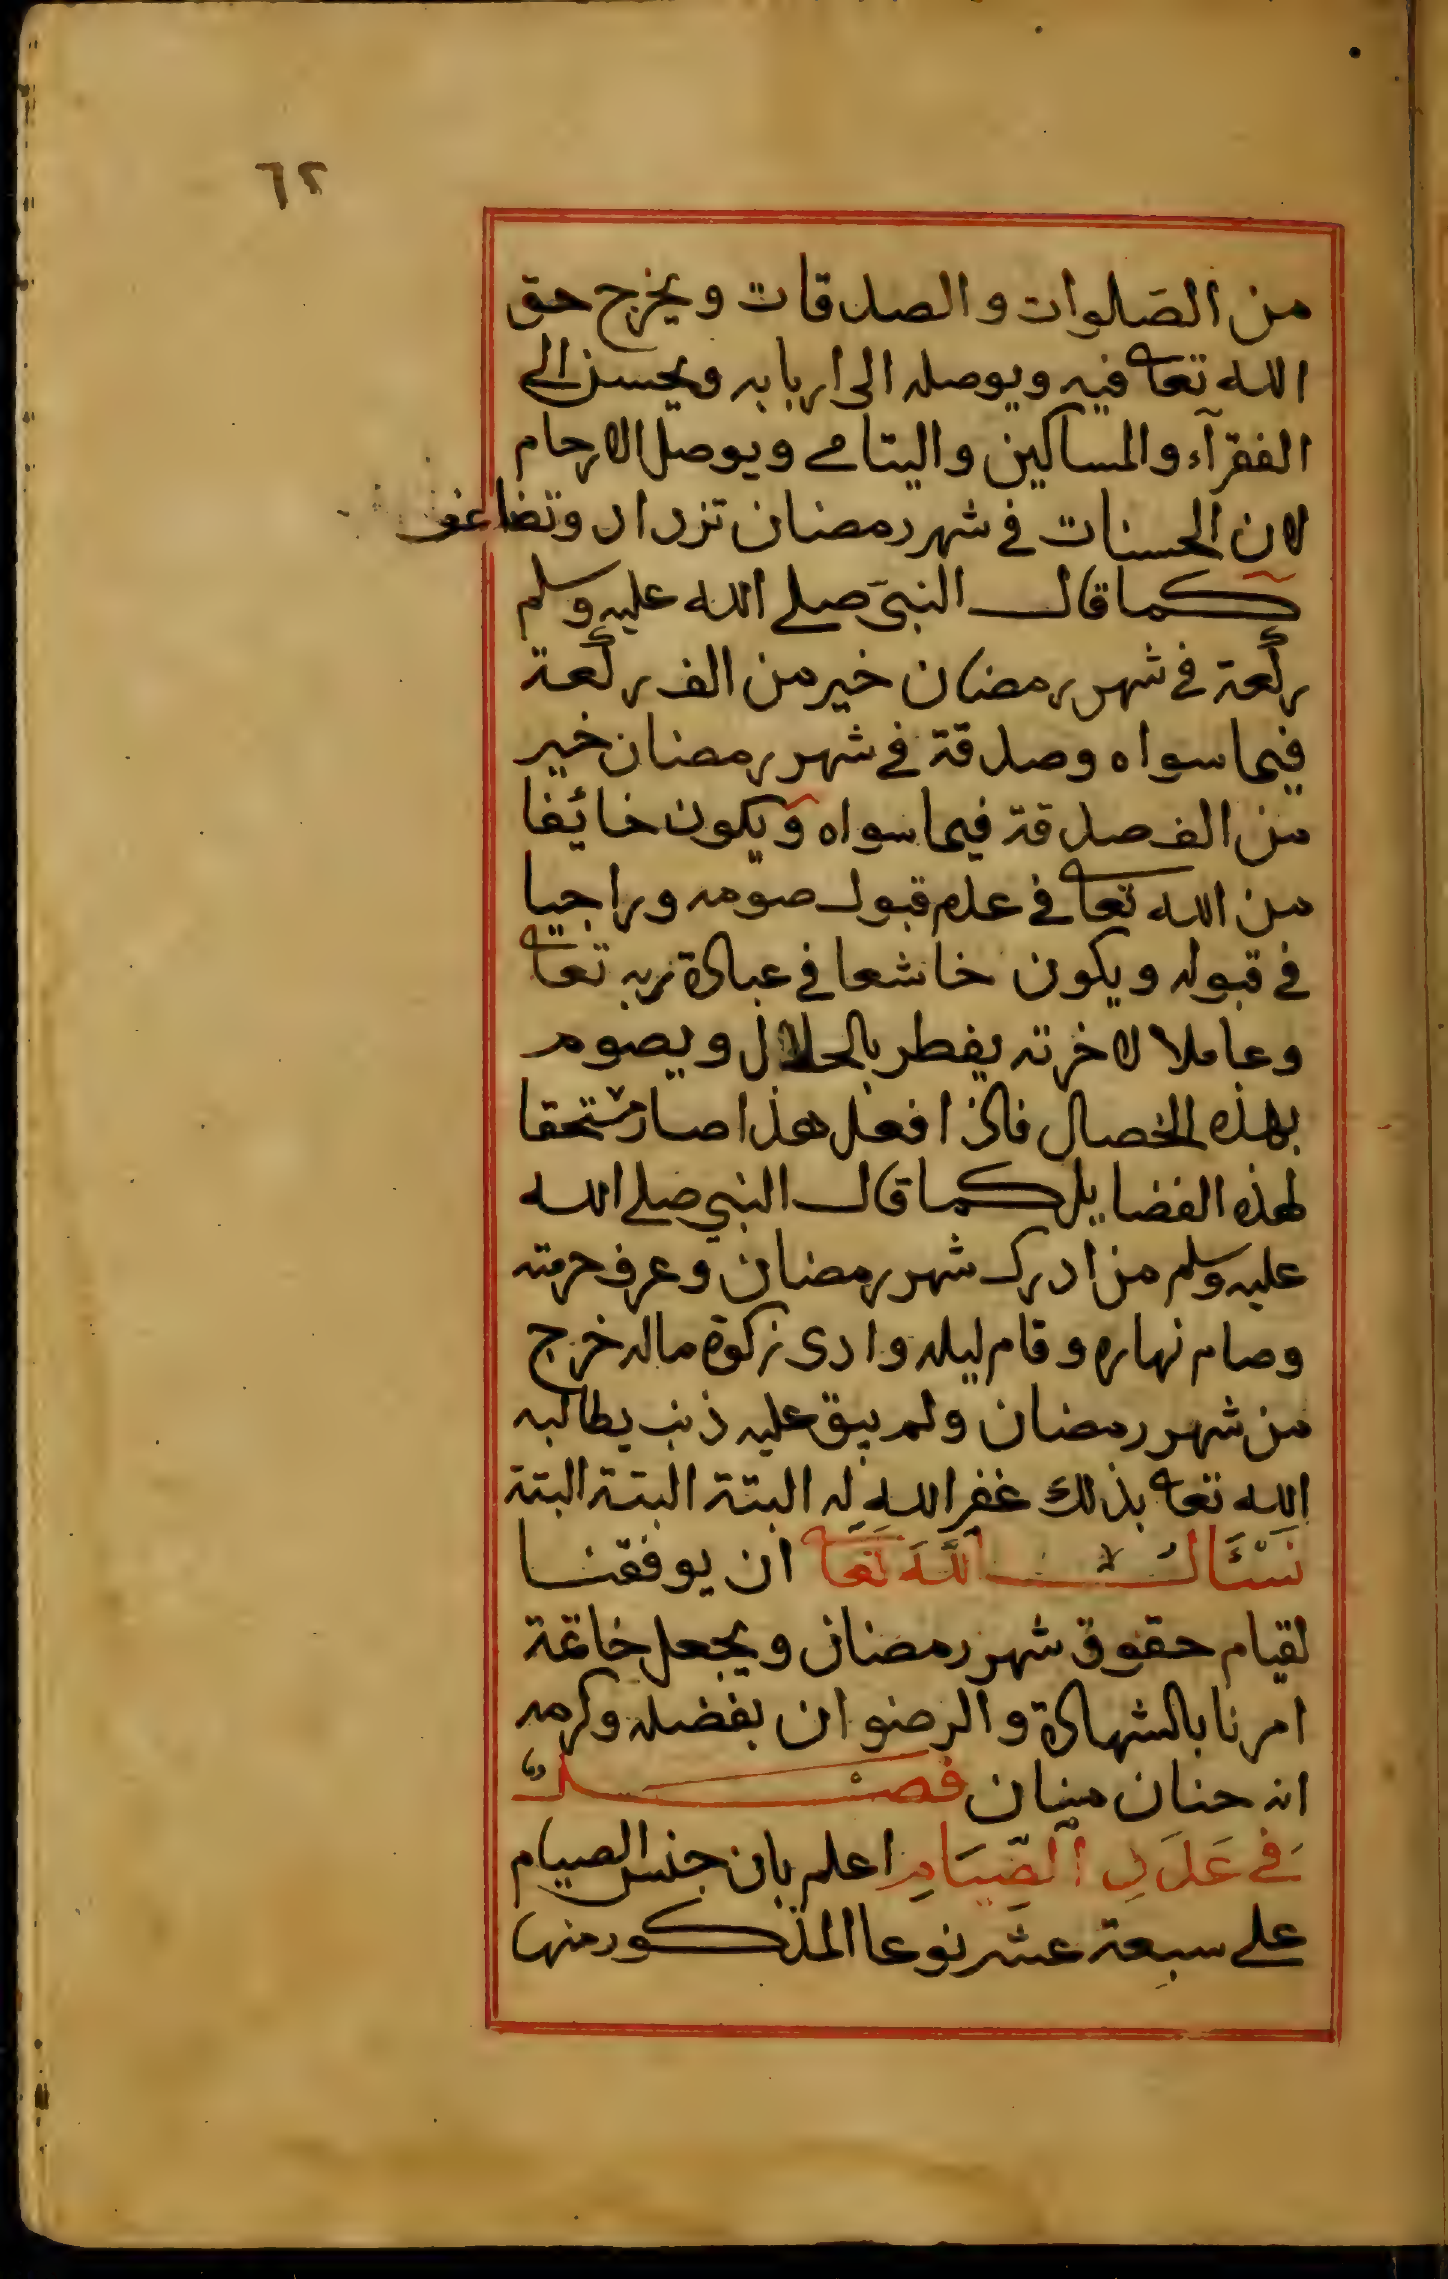 ٦٢
من الصلوات والصدقات ويخرج حق
الله تعا فيه ويوصله الى اربابه ويحسن الى
الفقرآء والمساكين واليتامى ويوصل الارحام
لان الحسنات فى شهر رمضان تزداد وتضاعف
كما قال النبى صلى الله عليه وسلم
ركعة فى شهر رمضان خير من الف ركعة
فيما سواه وصدقة فى شهر رمضان خير
من الف صدقة فيما سواه ويكون خائفا
من الله تعا فى عدم قبول صومه وراجيا
فى قبوله ويكون خاشعا فى عبادة ربه تعا
وعاملا لاخرته يفطر بالحلال ويصوم
بهذه الخصال فاذا فعل هذا صار مستحقا
لهذه الفضايل كما قال النبي صلى الله
عليه وسلم من ادرك شهر رمضان وعرف حرمته
وصام نهاره وقام ليله وادى زكوة ماله خرج
من شهر رمضان ولم يبق عليه ذنب يطالبه
الله تعا بذلك غفر الله له البتة البتة البتة
نَسْئَالُ اللَّهَ تَعَا ان يوفقنا
لقيام حقوق شهر رمضان ويجعل خاتمة
امرنا بالشهادة والرضوان بفضله وكرمه
انه حنان منان فصْلٌ
فى عَدَدِ الصِّيَامِ اعلم بان جنس الصيام
على سبعة عشر نوعا المذكور منها